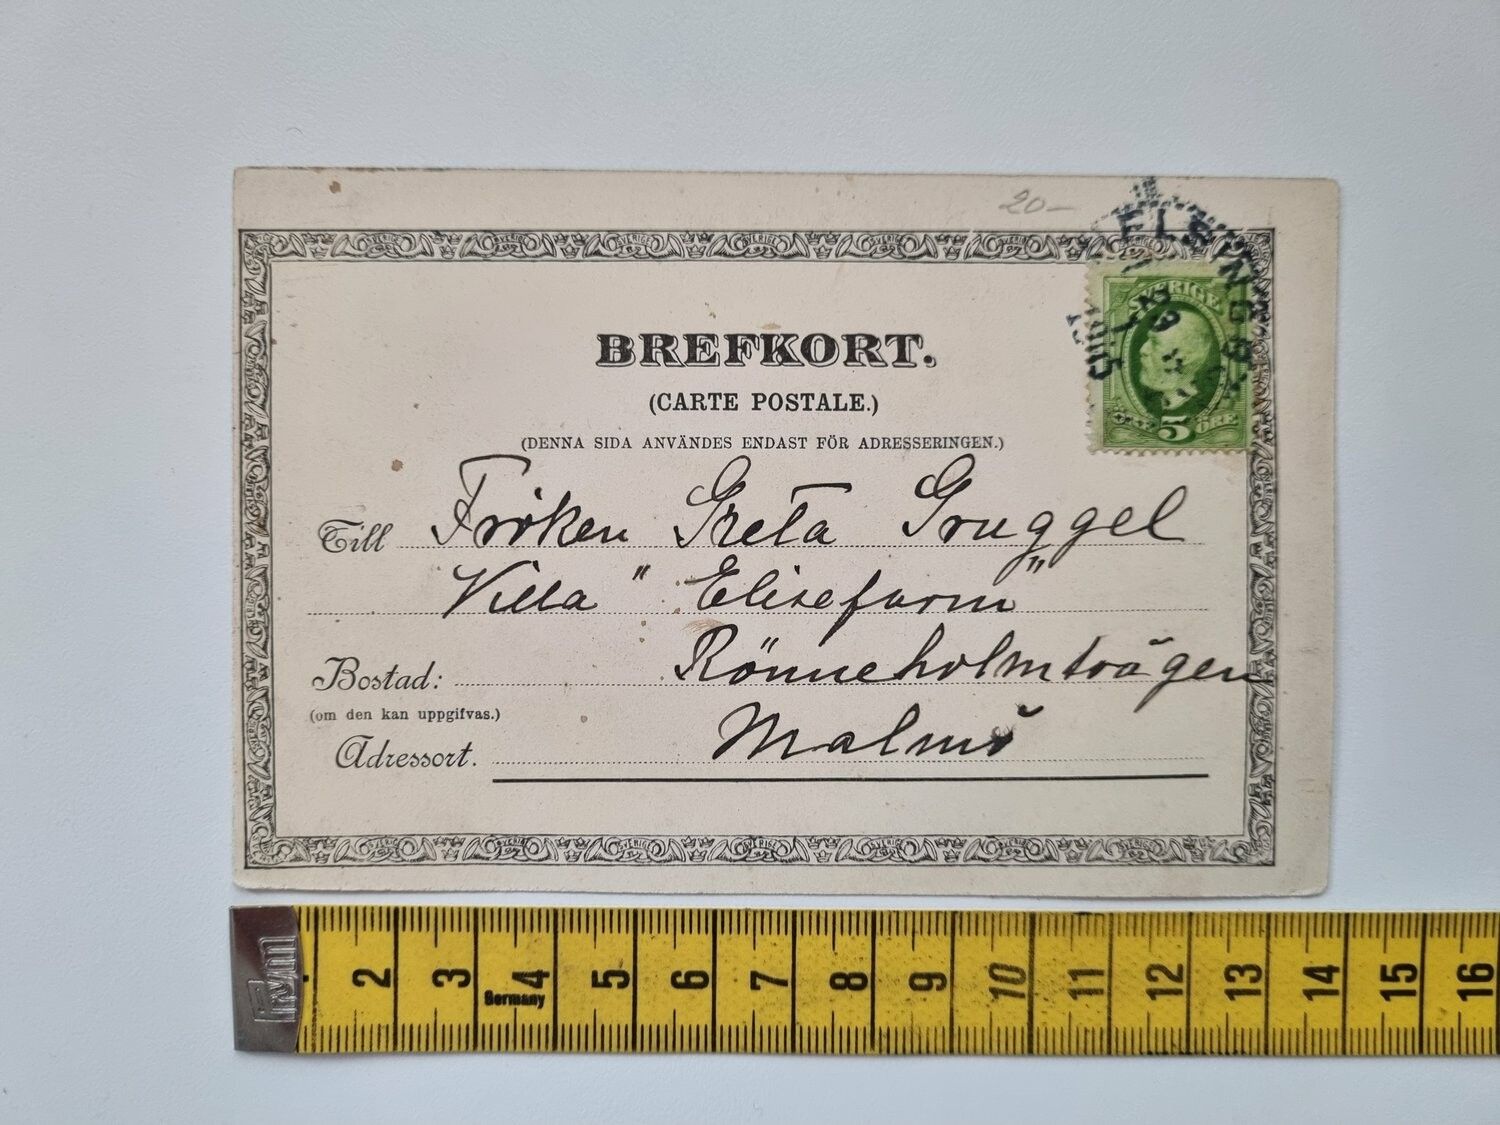 20-
BREFKORT.
(CARTE POSTALE.)
(DENNA SIDA ANVÄNDES ENDAST FÖR ADRESSERINGEN.)
SVERIGE
5 ÖRE
Till Fröken Greta Gruggel
Villa "Elisefarm"
Bostad: Rönneholmsvägen
(om den kan uppgifvas.)
Adressort. Malmö
2 3 4 5 6 7 8 9 10 11 12 13 14 15 16
Germany